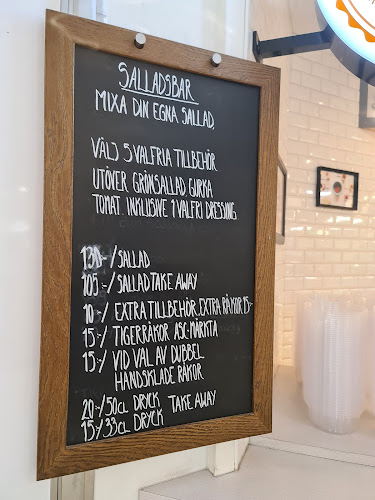 SALLADSBAR
MIXA DIN EGNA SALLAD.
VÄLJ 5 VALFRIA TILLBEHÖR
UTÖVER GRÖNSALLAD GURKA
TOMAT. INKLUSIVE 1 VALFRI DRESSING.
130:-/SALLAD
105:-/SALLAD TAKE AWAY
10:-/EXTRA TILLBEHÖR, EXTRA RÄKOR 15:-
15:-/TIGERRÄKOR ASC-MÄRKTA
15:-/VID VAL AV DUBBEL
HANDSKALADE RÄKOR
20:-/50CL DRYCK TAKE AWAY
15:-/33CL DRYCK